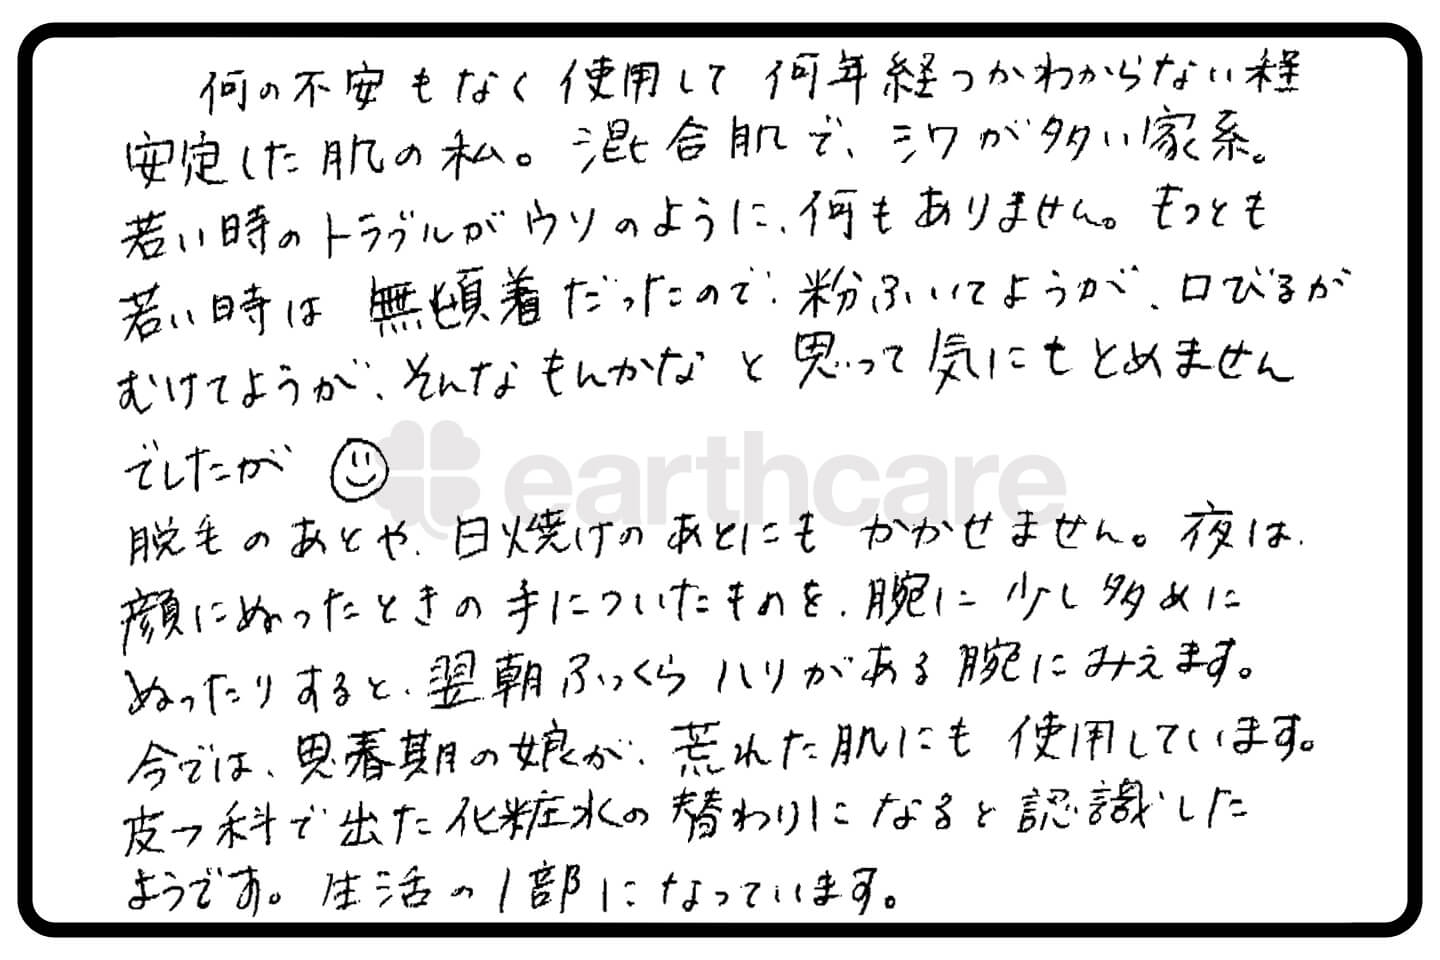 何の不安もなく使用して何年経つかわからない程
安定した肌の私。混合肌で、シワが多い家系。
若い時のトラブルがウソのように、何もありません。もっとも
若い時は無頓着だったので、粉ふいてようが、口びるが
むけてようが、そんなもんかなと思って気にもとめません
でしたが
earthcare
脱毛のあとや、日焼けのあとにもかかせません。夜は、
顔にぬったときの手についたものを、腕に少し多めに
ぬったりすると、翌朝ふっくらハリがある腕にみえます。
今では、思春期の娘が、荒れた肌にも使用しています。
皮フ科で出た化粧水の替わりになると認識した
ようです。生活の1部になっています。